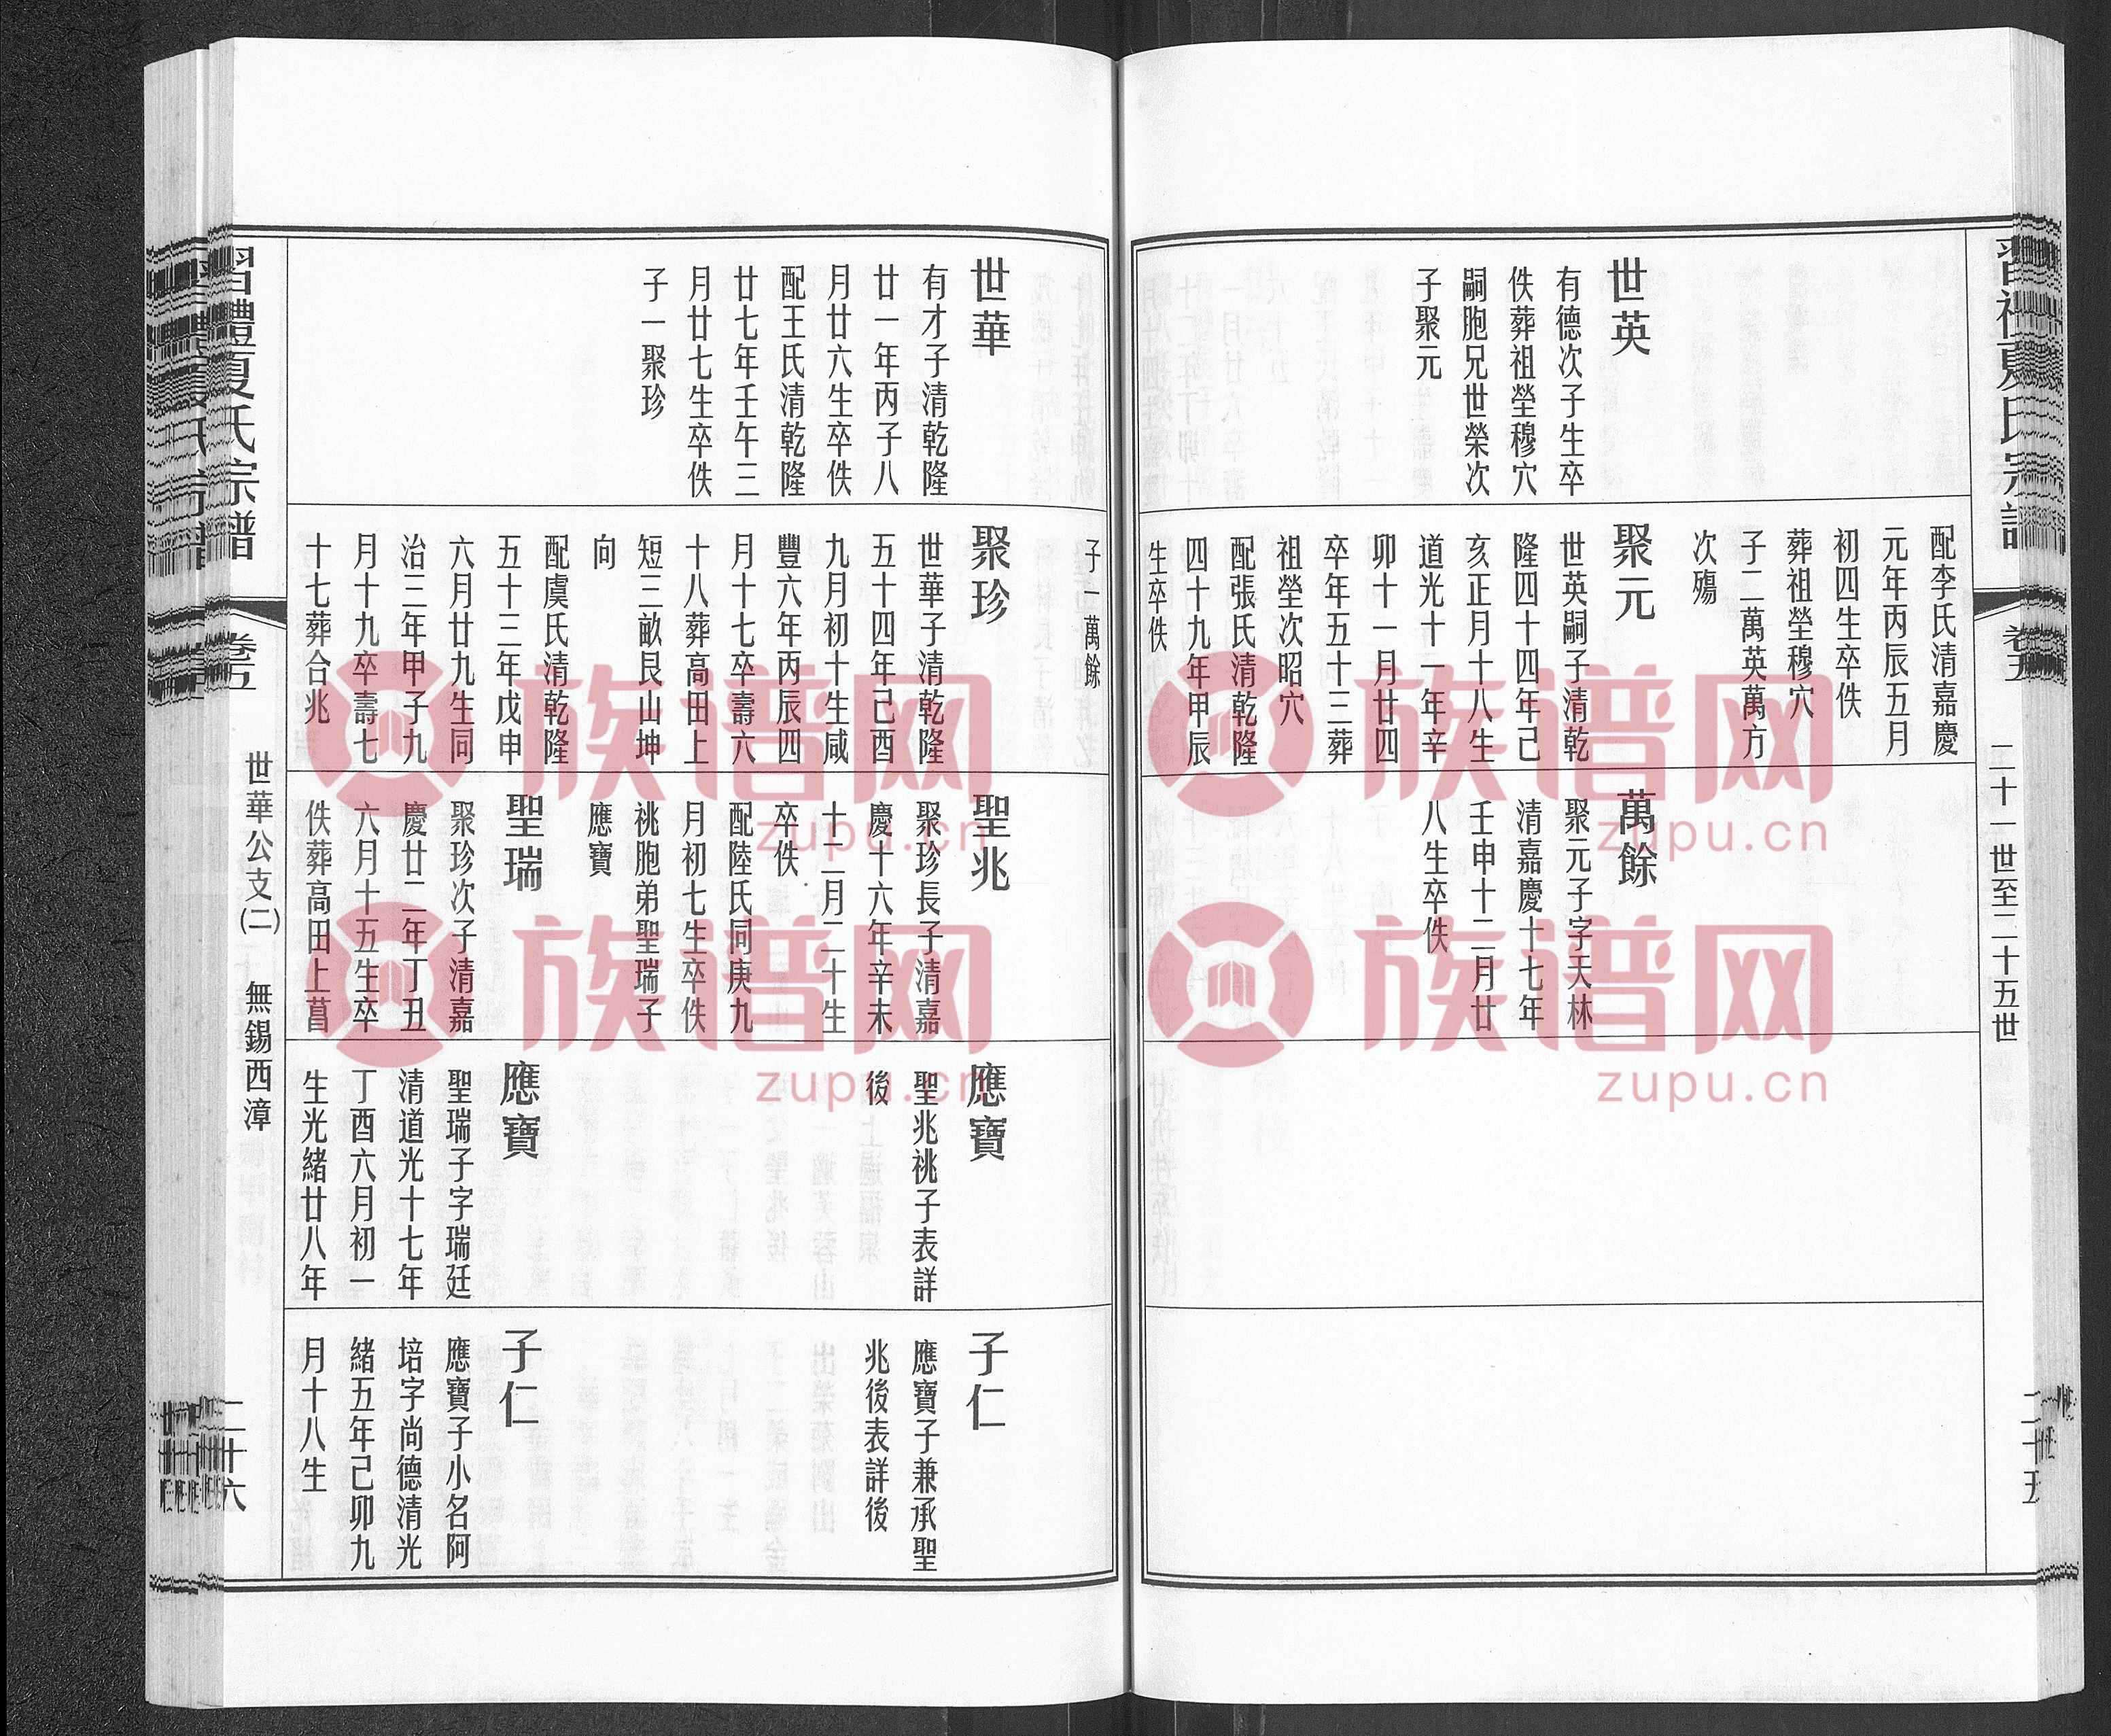 習禮夏氏宗譜
卷五
二十一世至二十五世
二十五
世英
有德次子生卒
佚葬祖塋穆穴
嗣胞兄世榮次
子聚元
配李氏清嘉慶
元年丙辰五月
初四生卒佚
葬祖塋穆穴
子二萬英萬方
次殤
聚元
世英嗣子清乾
隆四十四年己
亥正月十八生
道光十一年辛
卯十一月廿四
卒年五十三葬
祖塋次昭穴
配張氏清乾隆
四十九年甲辰
生卒佚
萬餘
聚元子字天林
清嘉慶十七年
壬申十二月廿
八生卒佚
世華
有才子清乾隆
廿一年丙子八
月廿六生卒佚
配王氏清乾隆
廿七年壬午三
月廿七生卒佚
子一聚珍
子一萬餘
聚珍
世華子清乾隆
五十四年己酉
九月初十生咸
豐六年丙辰四
月十七卒壽六
十八葬高田上
短三畝艮山坤
向
配虞氏清乾隆
五十三年戊申
六月廿九生同
治三年甲子九
月十九卒壽七
十七葬合兆
聖兆
聚珍長子清嘉
慶十六年辛未
十二月二十生
卒佚
配陸氏同庚九
月初七生卒佚
祧胞弟聖瑞子
應寶
聖瑞
聚珍次子清嘉
慶廿二年丁丑
六月十五生卒
佚葬高田上菖
應寶
聖兆祧子表詳
後
應寶
聖瑞子字瑞廷
清道光十七年
丁酉六月初一
生光緒廿八年
子仁
應寶子兼承聖
兆後表詳後
子仁
應寶子小名阿
培字尚德清光
緒五年己卯九
月十八生
習禮夏氏宗譜
卷五
世華公支(二) 無錫西漳
二十六
族谱网
zupu.cn
族谱网
zupu.cn
族谱网
zupu.cn
族谱网
zupu.cn